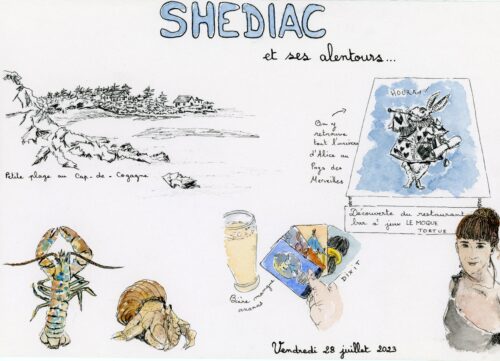 SHEDIAC
et ses alentours...
HOURRA!
On y
retrouve
tout l'univers
d'Alice au
Pays des
Merveilles
Petite plage au Cap-de-Cocagne
Découverte du restaurant
bar à jeux LE MOQUE
TORTUE
DIXIT
Bière mangue
ananas
Vendredi 28 juillet 2023